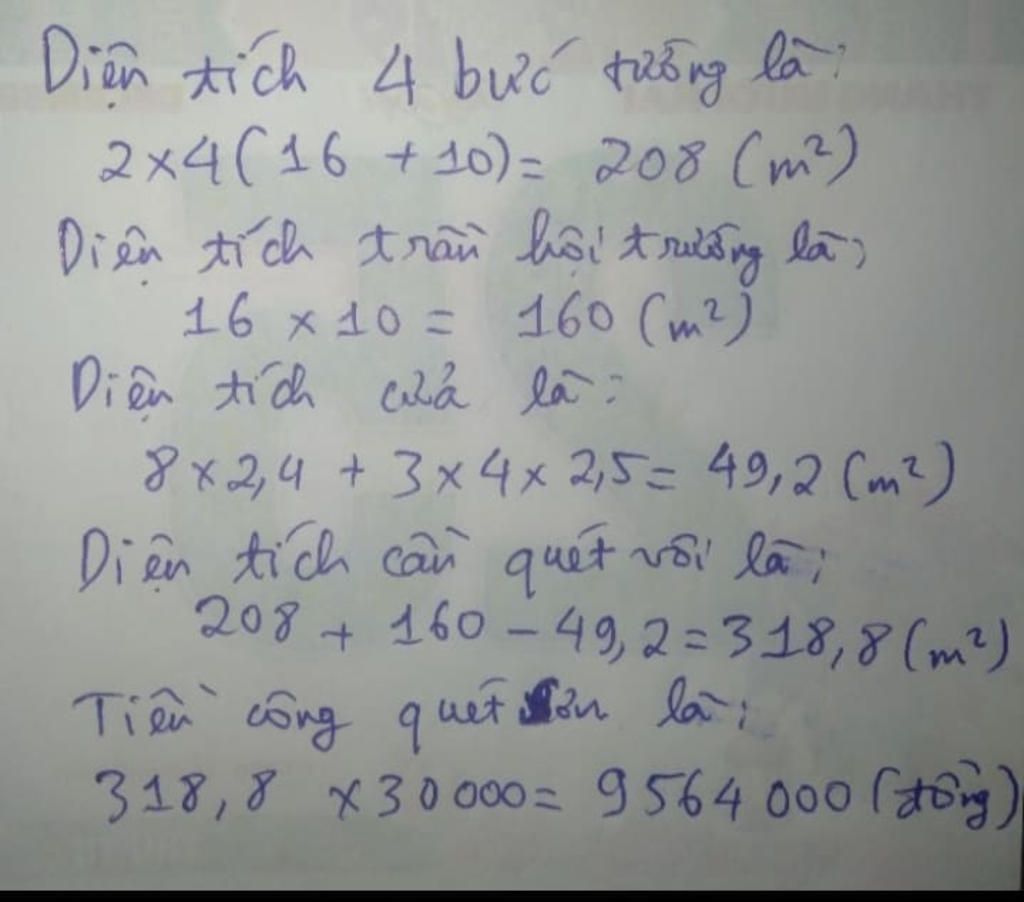 Diện tích 4 bức tường là:
2×4(16 +10)= 208 (m²)
Diện tích trần hội trường là;
16 × 10 = 160 (m²)
Diện tích cửa là:
8×2,4 + 3×4×2,5= 49,2 (m²)
Diện tích cần quét vôi là;
208 + 160 - 49,2=318,8 (m²)
Tiền công quét sơn là;
318,8 ×30 000= 9564 000 (đồng)